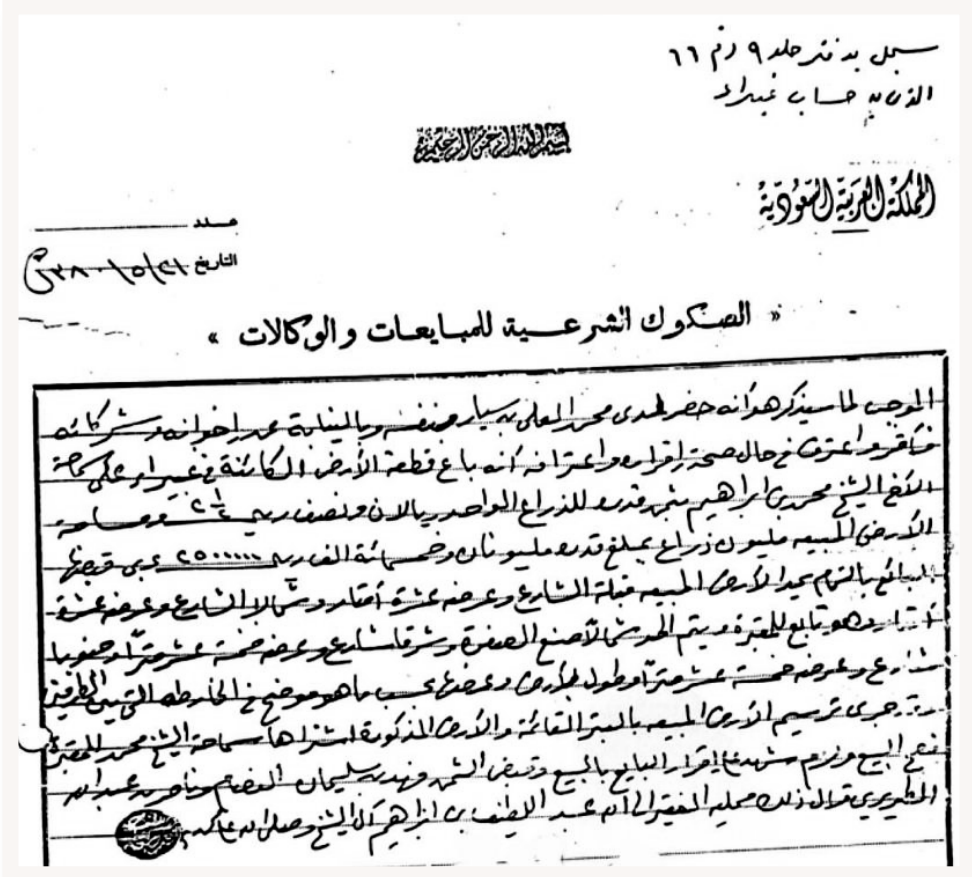 سجل بدفتر جلد ٩ رقم ٦٦
حساب
بسم الله الرحمن الرحيم
المملكة العربية السعودية
عدد
التاريخ ٢١/٥/١٣٨٠
« الصكوك الشرعية للمبايعات والوكالات »
الموجب لما سيذكر هو أنه حضر لدي محمد المعلى بنفسه وبالنيابة عن إخوانه وشركائه
فأقر واعترف في حال صحة إقراره واعترافه أنه باع قطعة الأرض الكائنة في غبيراء على سماحة
الأخ الشيخ محمد بن ابراهيم بثمن قدره للذراع الواحد ريالان ونصف ومساحة
الأرض المبيعه مليون ذراع بمبلغ قدره مليونان وخمسمائة الف ريال ٢٥٠٠٠٠٠ عربي قبضها
البائع بالتمام يحد الأرض المبيعه قبلة الشارع وعرضه عشرة أمتار وشمالا الشارع وعرضه عشرة
أمتار وهو تابع للمقبرة ويتم الحد شمالاً مصنع وشرقا شارع وعرضه خمسة عشر متراً وجنوبا
شارع وعرضه خمسة عشر متراً وطول الأرض وعرضها بحسب ما هو موضح في الخارطه التي بين الطرفين
وقد جرى ترسيم الأرض المبيعه والأرض المذكورة اشتراها سماحة الشيخ محمد للمقبرة
فصح البيع ولزم شهد على إقرار البايع بالبيع وقبض الثمن فهد بن سليمان وناصر بن عبدالله
قال ذلك ممليه الفقير الى الله عبد اللطيف بن ابراهيم آل الشيخ وصلى الله على محمد